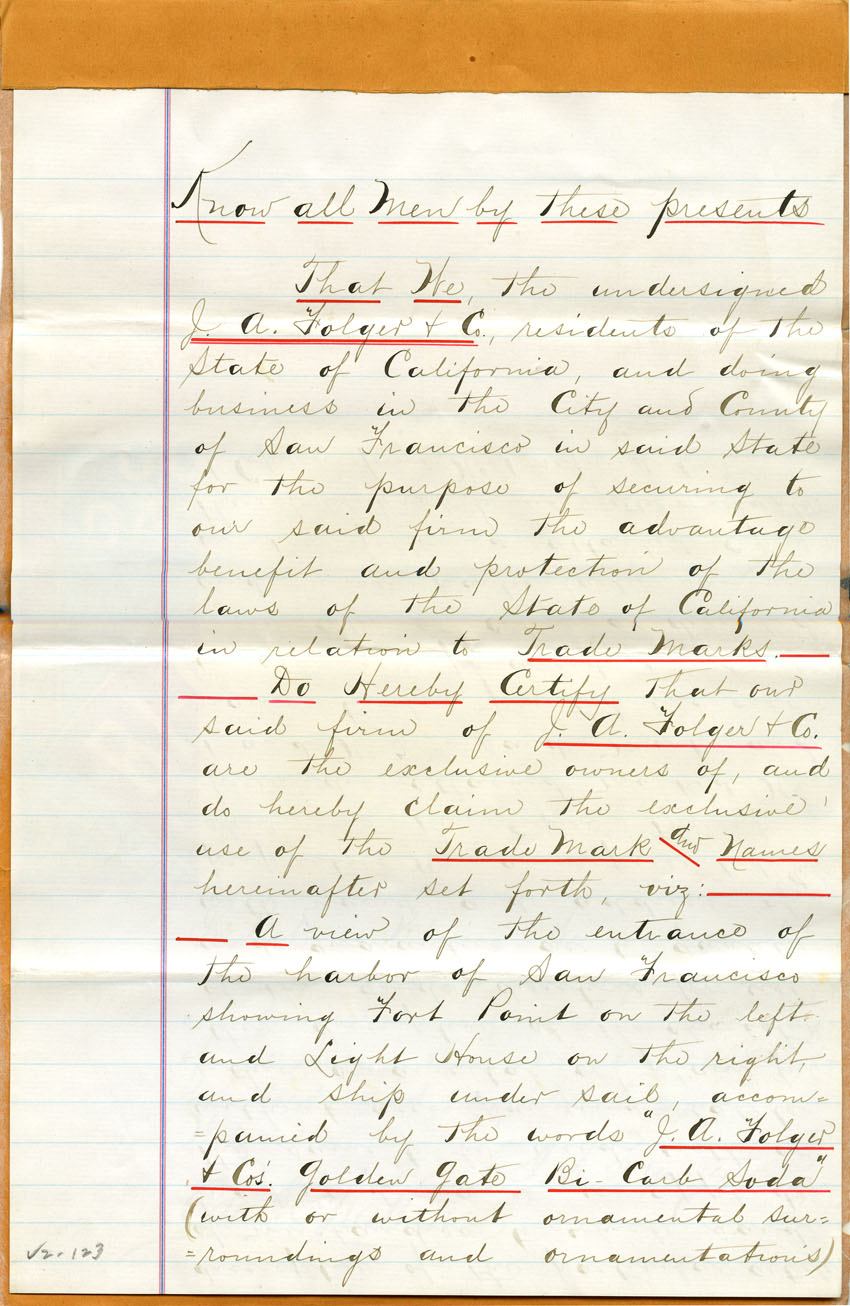 Know all Men by these presents
That We, the undersigned
J. A. Folger & Co., residents of the
State of California, and doing
business in the City and County
of San Francisco in said State
for the purpose of securing to
our said firm the advantage
benefit and protection of the
laws of the State of California
in relation to Trade Marks.—
— Do Hereby Certify that our
said firm of J. A. Folger & Co.
are the exclusive owners of, and
do hereby claim the exclusive
use of the Trade Mark and Names
hereinafter set forth, viz:—
— A view of the entrance of
the harbor of San Francisco
showing Fort Point on the left
and Light House on the right,
and ship under sail, accom=
=panied by the words "J. A. Folger
& Co's. Golden Gate Bi-Carb Soda"
(with or without ornamental sur=
=roundings and ornamentations)
V2-123